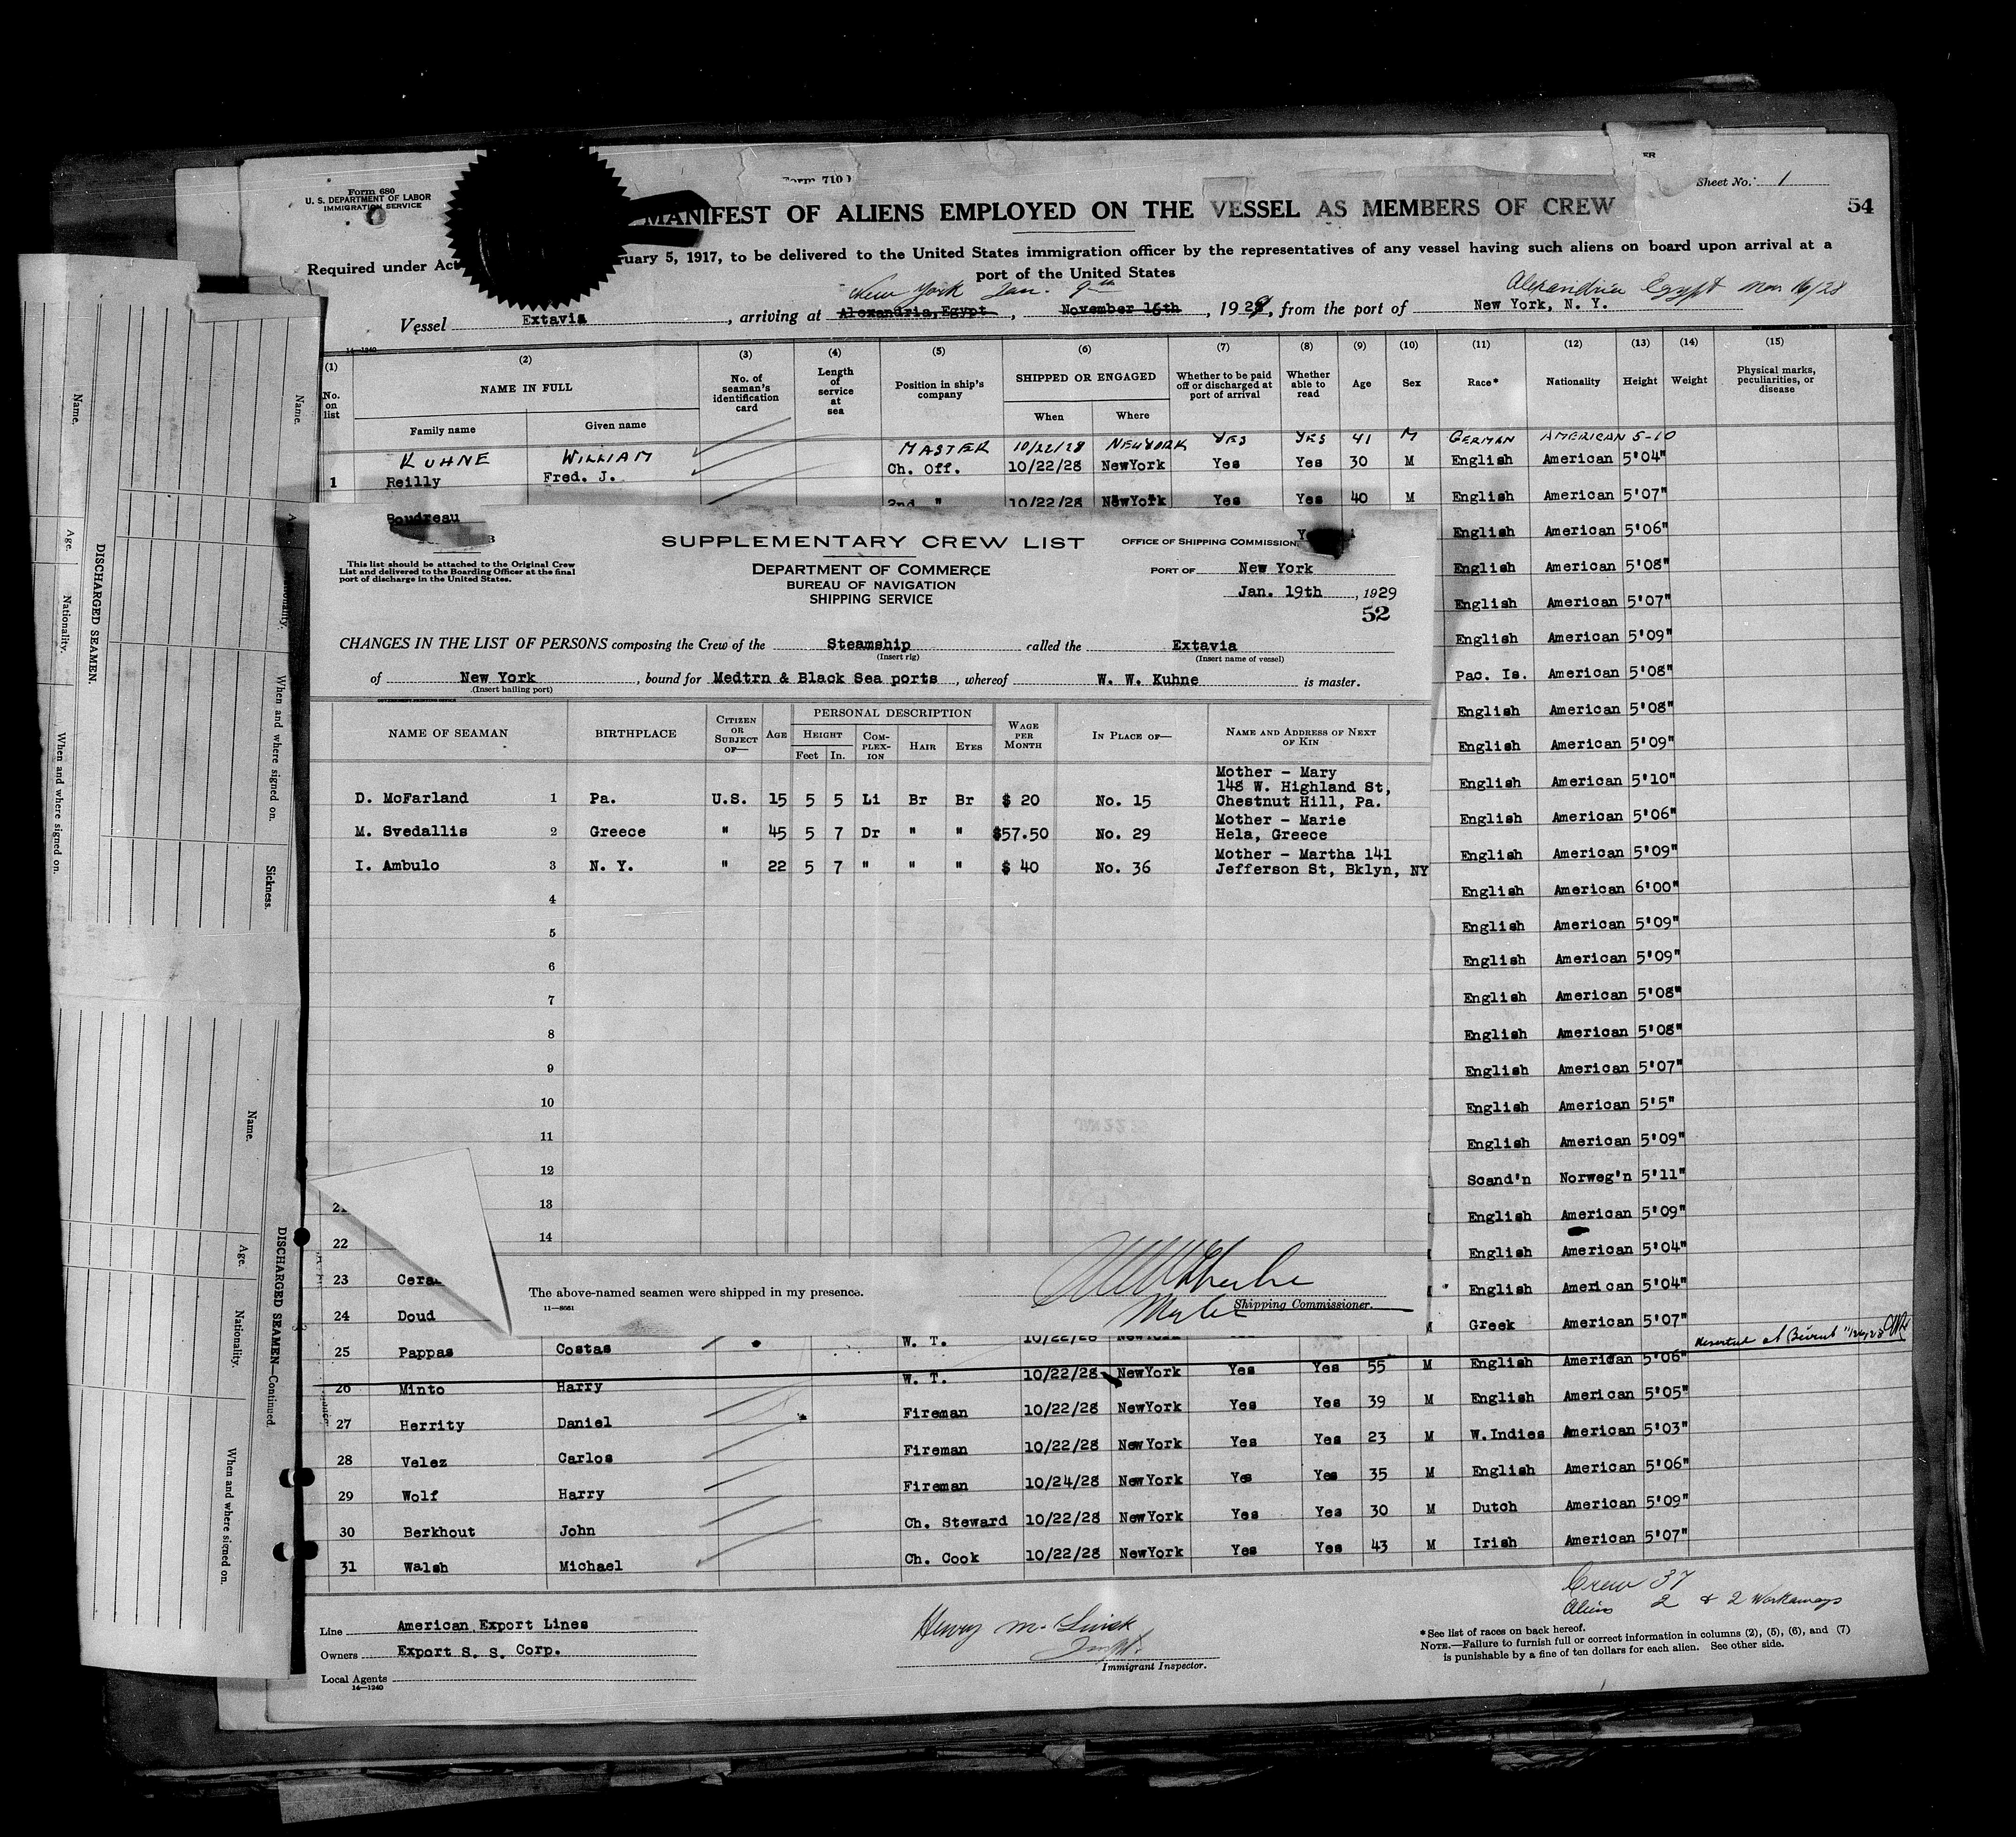 Form 680
U. S. DEPARTMENT OF LABOR
IMMIGRATION SERVICE
Form 710
Sheet No. 1
MANIFEST OF ALIENS EMPLOYED ON THE VESSEL AS MEMBERS OF CREW
54
Required under Act uary 5, 1917, to be delivered to the United States immigration officer by the representatives of any vessel having such aliens on board upon arrival at a
port of the United States
New York Jan. 9th Alexandria Egypt
Vessel Extavia, arriving at Alexandria, Egypt, November 15th, 1929, from the port of New York, N. Y.
14—1240
(1) (2) (3) (4) (5) (6) (7) (8) (9) (10) (11) (12) (13) (14) (15)
No. on list NAME IN FULL No. of seaman's identification card Length of service at sea Position in ship's company SHIPPED OR ENGAGED Whether to be paid off or discharged at port of arrival Whether able to read Age Sex Race* Nationality Height Weight Physical marks, peculiarities, or disease
Family name Given name When Where
KUHNE WILLIAM MASTER 10/22/28 NEWYORK YES YES 41 M GERMAN AMERICAN 5-10
1 Reilly Fred. J. Ch. Off. 10/22/28 NewYork Yes Yes 30 M English American 5'04"
Boudreau 2nd " 10/22/28 NewYork Yes Yes 40 M English American 5'07"
English American 5'06"
English American 5'08"
English American 5'07"
English American 5'09"
Pac. Is. American 5'08"
English American 5'08"
English American 5'09"
English American 5'10"
English American 5'06"
English American 5'09"
English American 6'00"
English American 5'09"
English American 5'09"
English American 5'08"
English American 5'08"
English American 5'07"
English American 5'5"
English American 5'09"
Scand'n Norweg'n 5'11"
21 English American 5'09"
22 English American 5'04"
23 Cera English American 5'04"
24 Doud Greek American 5'07"
25 Pappas Costas W. T. 10/22/28 NewYork
Deserted at Beirut
26 Minto Harry W. T. 10/22/28 NewYork Yes Yes 55 M English American 5'06"
27 Herrity Daniel Fireman 10/22/28 NewYork Yes Yes 39 M English American 5'05"
28 Velez Carlos Fireman 10/22/28 NewYork Yes Yes 23 M W.Indies American 5'03"
29 Wolf Harry Fireman 10/24/28 NewYork Yes Yes 35 M English American 5'06"
30 Berkhout John Ch. Steward 10/22/28 NewYork Yes Yes 30 M Dutch American 5'09"
31 Walsh Michael Ch. Cook 10/22/28 NewYork Yes Yes 43 M Irish American 5'07"
Crew 37
Aliens 2 & 2 Workaways
Line American Export Lines
Owners Export S. S. Corp.
Local Agents
14—1240
Henry
Immigrant Inspector.
*See list of races on back hereof.
NOTE.—Failure to furnish full or correct information in columns (2), (5), (6), and (7)
is punishable by a fine of ten dollars for each alien. See other side.
This list should be attached to the Original Crew
List and delivered to the Boarding Officer at the final
port of discharge in the United States.
SUPPLEMENTARY CREW LIST
DEPARTMENT OF COMMERCE
BUREAU OF NAVIGATION
SHIPPING SERVICE
OFFICE OF SHIPPING COMMISSION
PORT OF New York
Jan. 19th, 1929
52
CHANGES IN THE LIST OF PERSONS composing the Crew of the Steamship called the Extavia
(Insert rig) (Insert name of vessel)
of New York, bound for Medtrn & Black Sea ports, whereof W. W. Kuhne is master.
(Insert hailing port)
GOVERNMENT PRINTING OFFICE
NAME OF SEAMAN BIRTHPLACE CITIZEN OR SUBJECT OF— AGE PERSONAL DESCRIPTION WAGE PER MONTH IN PLACE OF— NAME AND ADDRESS OF NEXT OF KIN
HEIGHT COMPLEXION HAIR EYES
Feet In.
Mother - Mary
148 W. Highland St,
D. McFarland 1 Pa. U.S. 15 5 5 Li Br Br $ 20 No. 15 Chestnut Hill, Pa.
Mother - Marie
M. Svedallis 2 Greece " 45 5 7 Dr " " $57.50 No. 29 Hela, Greece
Mother - Martha 141
I. Ambulo 3 N. Y. " 22 5 7 " " " $ 40 No. 36 Jefferson St, Bklyn, NY
4
5
6
7
8
9
10
11
12
13
14
The above-named seamen were shipped in my presence.
11—8681
Master
Shipping Commissioner.
Name.
Age.
Nationality.
When and where signed on.
DISCHARGED SEAMEN.
Name.
When and where signed on.
Sickness.
Name.
Age.
Nationality.
When and where signed on.
DISCHARGED SEAMEN—Continued.